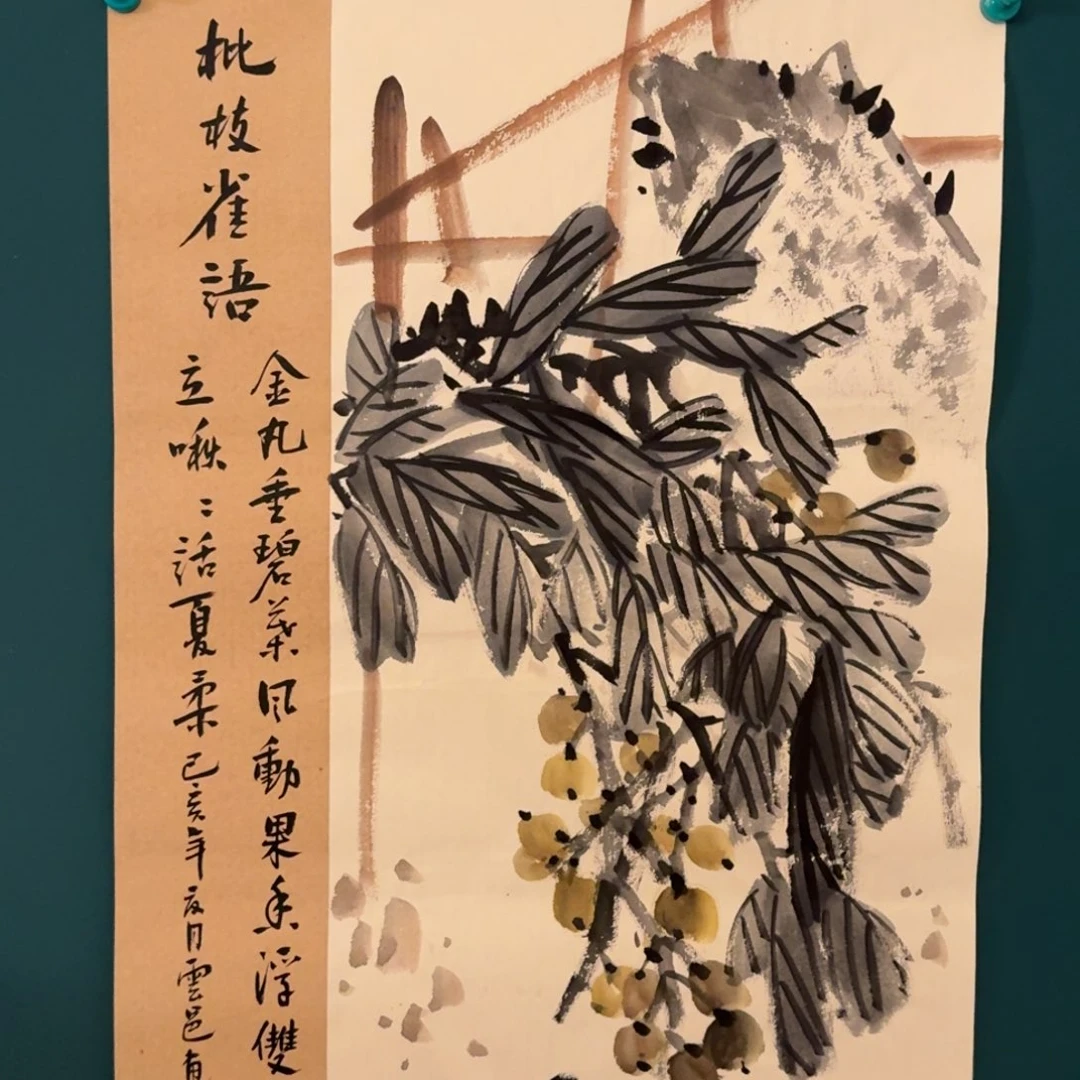 枇枝雀語
金丸垂碧葉風動果香浮雙
立啾〻話夏柔己亥年夏月雲邑